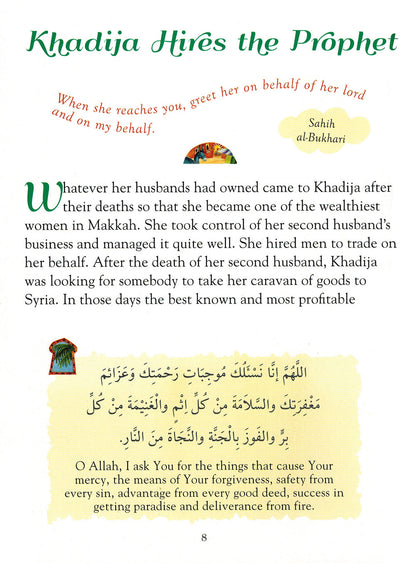 Khadija Hires the Prophet
When she reaches you, greet her on behalf of her lord
and on my behalf.
Sahih
al-Bukhari
Whatever her husbands had owned came to Khadija after
their deaths so that she became one of the wealthiest
women in Makkah. She took control of her second husband's
business and managed it quite well. She hired men to trade on
her behalf. After the death of her second husband, Khadija
was looking for somebody to take her caravan of goods to
Syria. In those days the best known and most profitable
اللَّهُمَّ إِنَّا نَسْئَلُكَ مُوجِبَاتِ رَحْمَتِكَ وَعَزَائِمَ
مَغْفِرَتِكَ والسَّلاَمَةَ مِنْ كُلِّ إِثْمٍ والْغَنِيْمَةَ مِنْ كُلِّ
بِرٍّ والفَوزَ بِالْجَنَّةِ والنَّجَاةَ مِنَ النَّارِ.
O Allah, I ask You for the things that cause Your
mercy, the means of Your forgiveness, safety from
every sin, advantage from every good deed, success in
getting paradise and deliverance from fire.
8